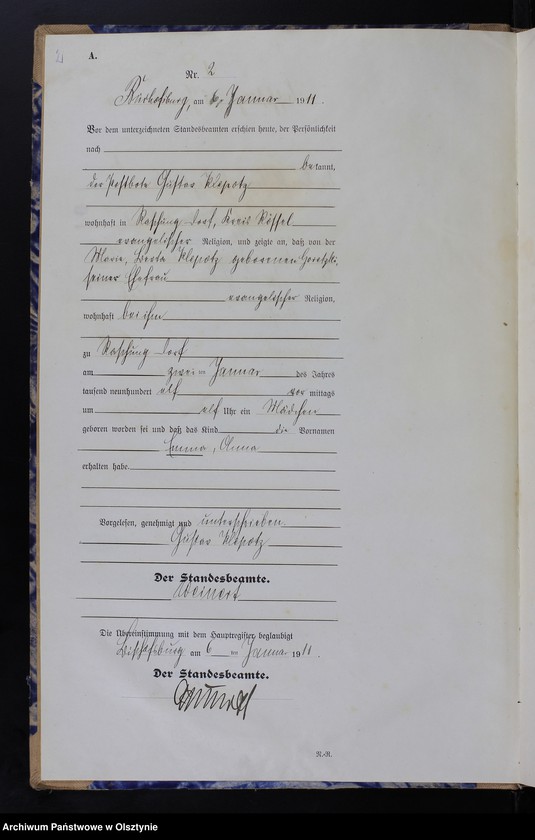 2
A.
Nr. 2
Bischofsburg, am 6. Januar 1911.
Vor dem unterzeichneten Standesbeamten erschien heute, der Persönlichkeit
nach
bekannt,
der Postbote Gustav Klopotz
wohnhaft in Raschung Dorf, Kreis Rössel
evangelischer Religion, und zeigte an, daß von der
Marie, Berta Klopotz geborenen
seiner Ehefrau
evangelischer Religion,
wohnhaft bei ihm
zu Raschung Dorf
am zwei ten Januar des Jahres
tausend neunhundert elf vor mittags
um elf Uhr ein Mädchen
geboren worden sei und daß das Kind die Vornamen
Emma, Anna
erhalten habe.
Vorgelesen, genehmigt und unterschrieben
Gustav Klopotz
Der Standesbeamte.
Weinert
Die Übereinstimmung mit dem Hauptregister beglaubigt
Bischofsburg am 6 ten Januar 1911.
Der Standesbeamte.
N.-R.
Archiwum Państwowe w Olsztynie